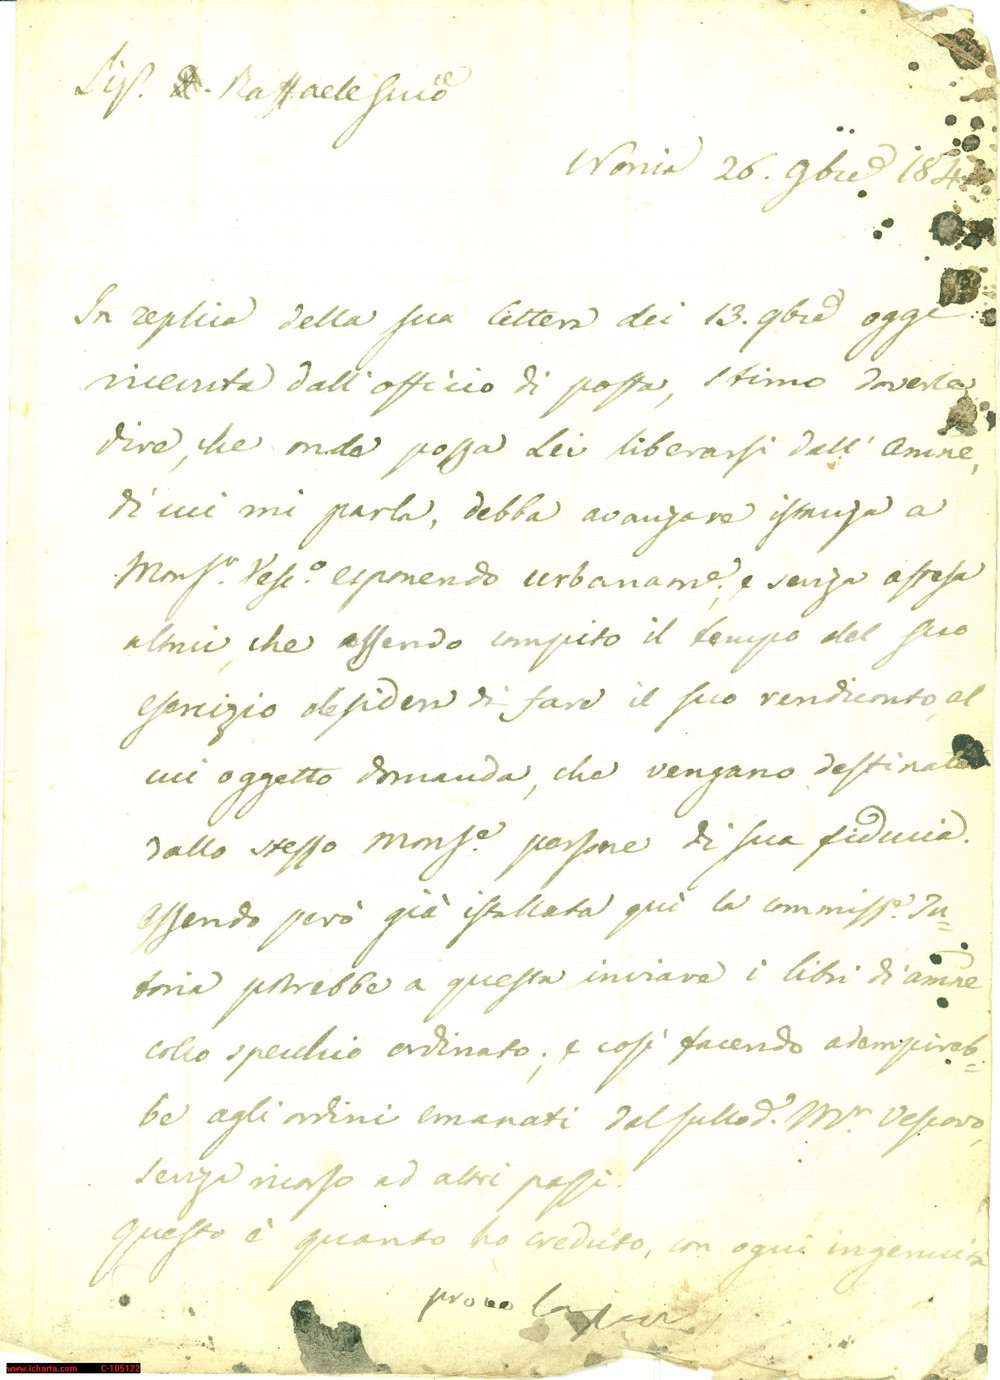 Sig. D. Raffaele
Norcia 26. 9bre 184
In replica della sua lettera dei 13. 9bre oggi
ricevuta dall'officio di posta, stimo doverle
dire, che onde possa Lei liberarsi dall' Amne,
di cui mi parla, debba avanzare istanza a
Monsr. Vesco. esponendo urbaname., e senza offesa
altrui, che essendo compito il tempo del suo
esercizio desidera di fare il suo rendiconto, al
cui oggetto domanda, che vengano destinate
dallo stesso Monse. persone di sua fiducia.
Essendo però già istallata quì la commisse. Tu=
toria potrebbe a questa inviare i libri d'amne
collo specchio ordinato; e così facendo adempireb=
be agli ordini emanati dal sullodo. Mr. Vescovo,
senza ricorso ad altri passi.
Questo è quanto ho creduto, con ogni ingenuità